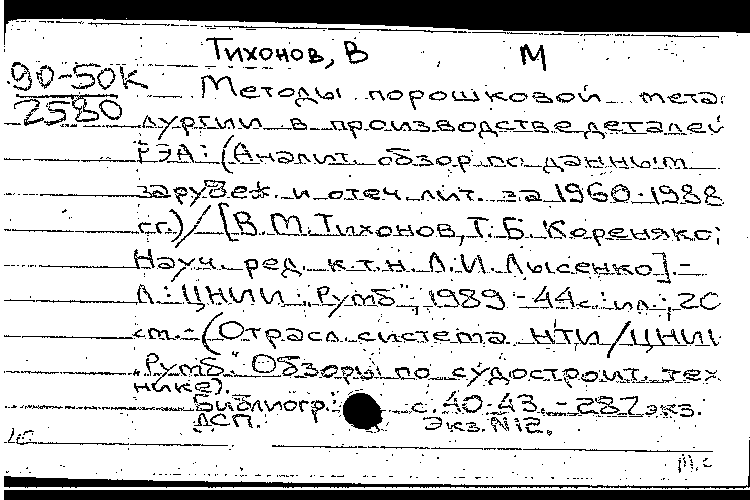 Тихонов, В М
90-50К Методы порошковой метал
2580 лургии в производстве деталей
РЭА: (Аналит. обзор по данным
зарубеж. и отеч. лит. за 1960-1988
гг.) / [В.М. Тихонов, Т.Б. Кореняко;
Науч. ред. к.т.н. Л.И. Лысенко]. -
Л.: ЦНИИ "Румб", 1989 - 44с.: ил.; 20
см. - (Отрасл. система НТИ / ЦНИИ
"Румб." Обзоры по судостроит. тех
нике).
Библиогр.: с. 40-43. - 287 экз.
ДСП. Экз. N12.